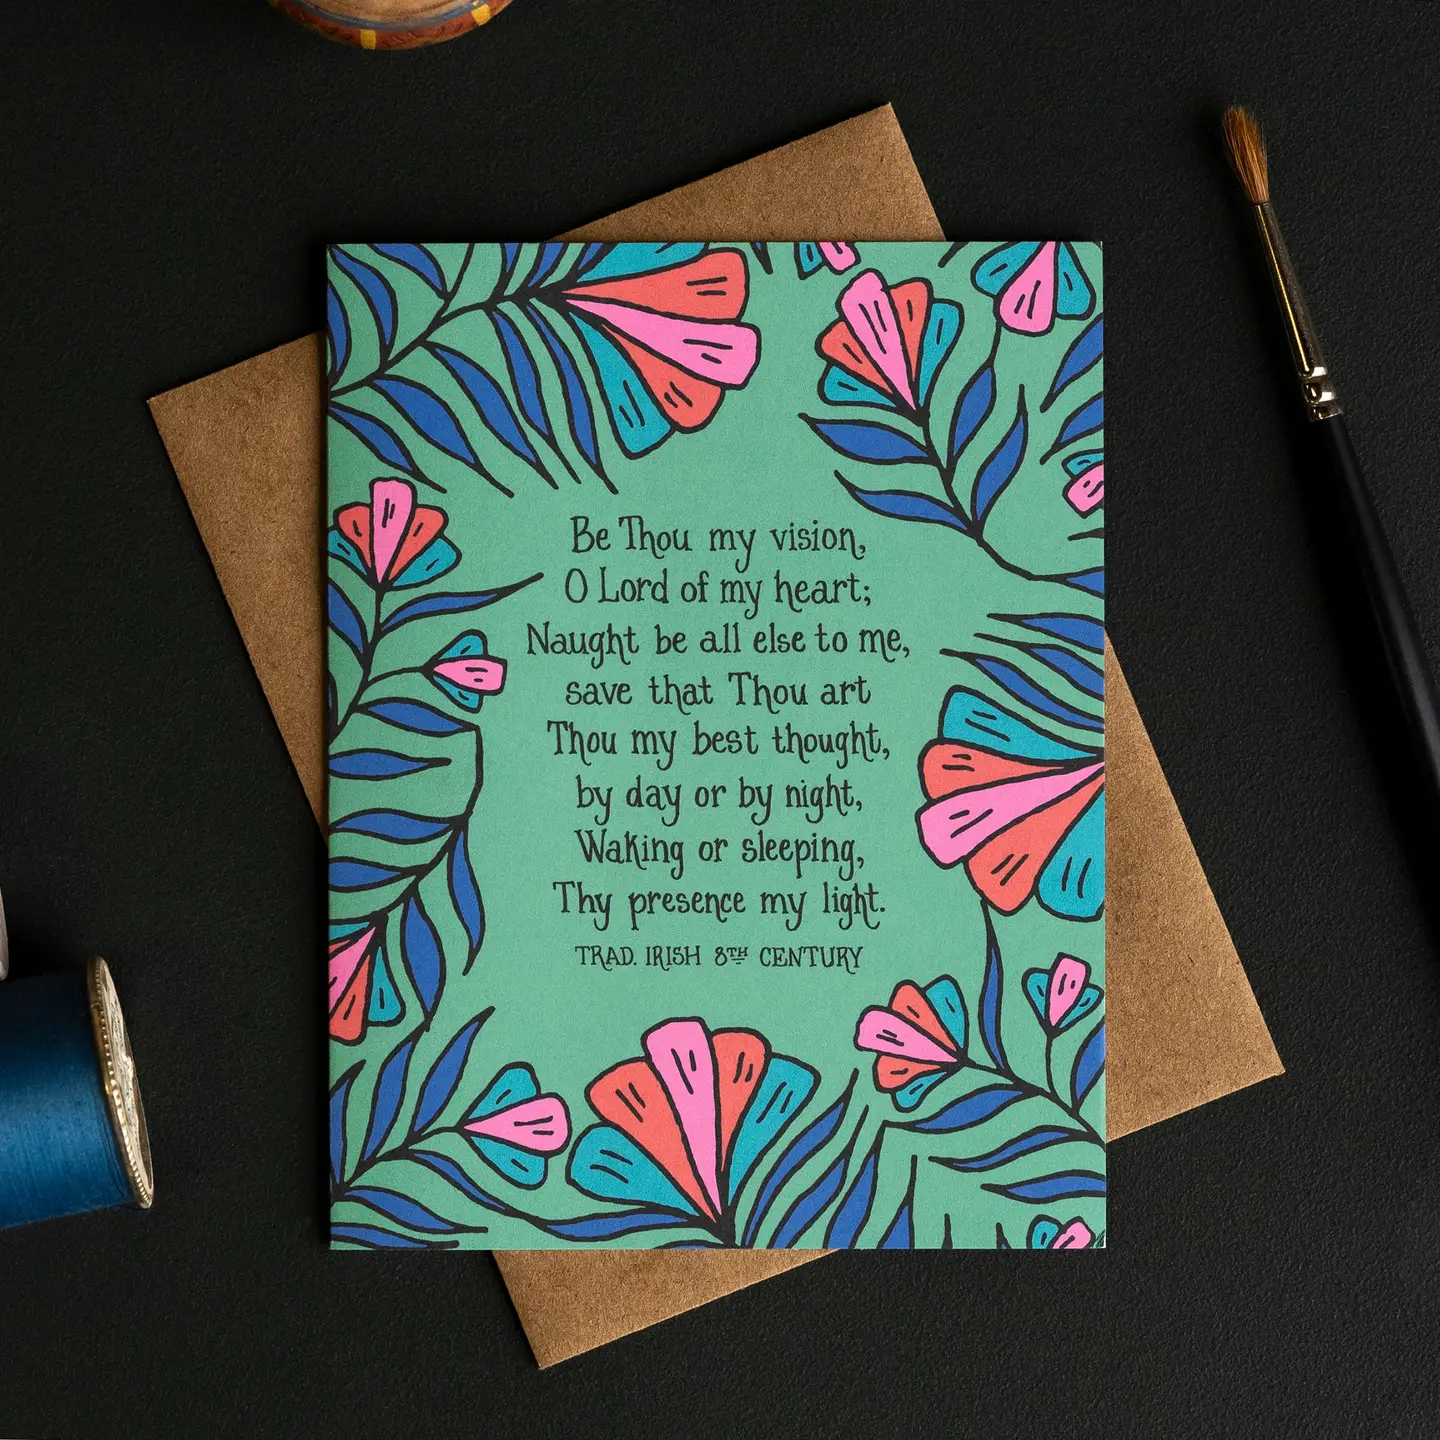 Be Thou my vision,
O Lord of my heart;
Naught be all else to me,
save that Thou art
Thou my best thought,
by day or by night,
Waking or sleeping,
Thy presence my light.
TRAD. IRISH 8TH CENTURY